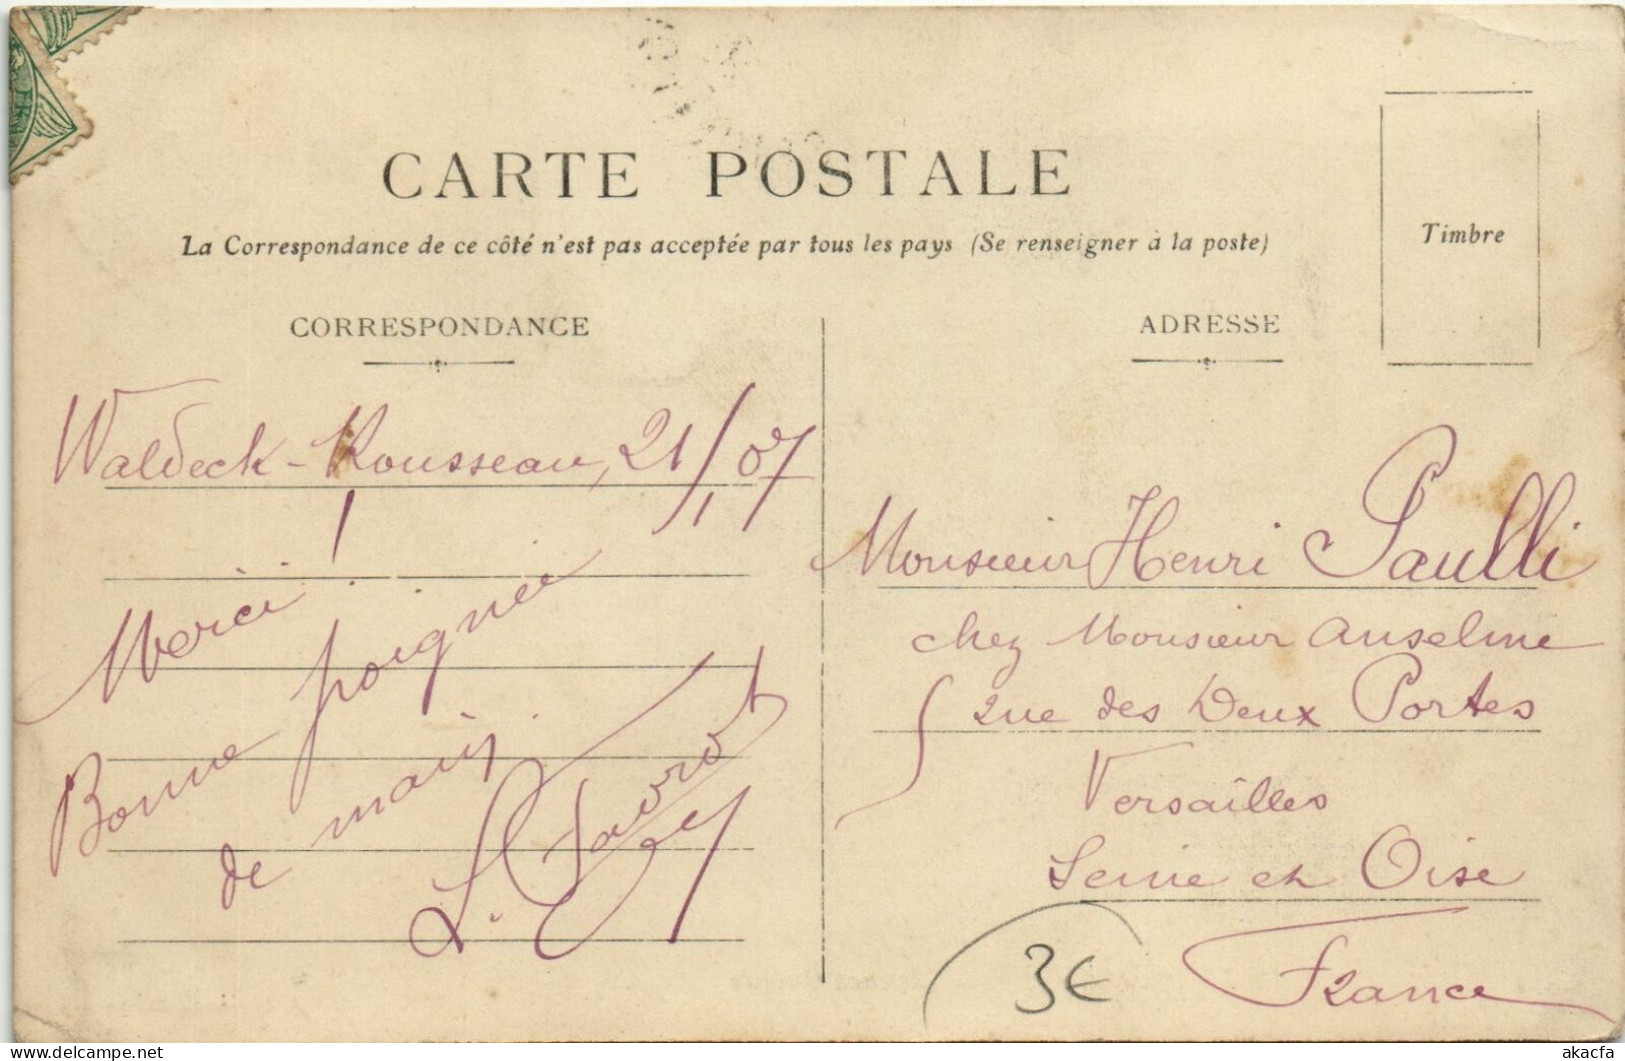 CARTE POSTALE
La Correspondance de ce côté n'est pas acceptée par tous les pays (Se renseigner à la poste)
Timbre
CORRESPONDANCE
Waldeck-Rousseau, 21/1 07
Merci!
Bonne poignée
de main.
ADRESSE
Monsieur Henri Paulli
chez Monsieur Anselme
rue des Deux Portes
Versailles
Seine et Oise
France
3€
akacfa